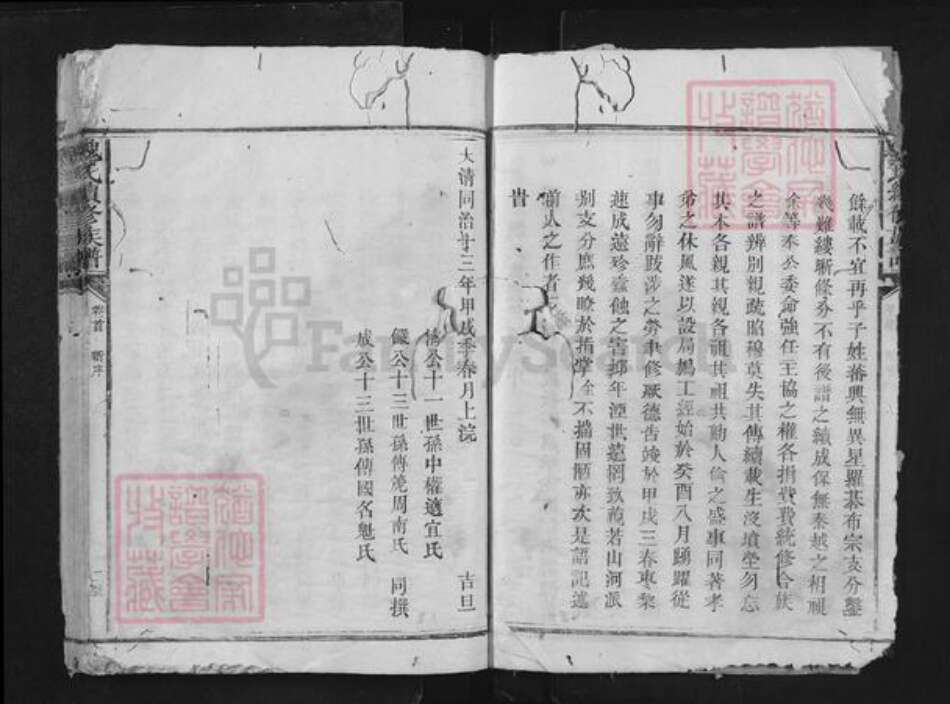 餘載不宜再乎子姓蕃興無異星羅基布宗支分鑿
難縷晰條分不有後譜之續成保無秦越之相視
余等本公委命強任王協之權各捐費費統修合族
之譜辨別親疏昭穆莫失其傳續載生沒墳塋勿忘
其本各親其親各祖其祖共勷人倫之盛事同著孝
弟之休風遂以設局鳩工經始於癸酉八月踴躍從
事勿辭跋涉之勞聿修厥德告竣於甲戌三春東黎
速成遠珍蠹蝕之害抑年湮世遠罔致茂若山河派
別支分庶幾瞭於指掌全不揣固陋亦次是語記述
前人之作者
旹
大清同治十三年甲戌季春月上浣 吉旦
公十一世孫中權適宜氏
儀公十三世孫傳堯周南氏 同撰
成公十三世孫傳國名魁氏
魏氏續修族譜
卷首 新序
FamilySearch